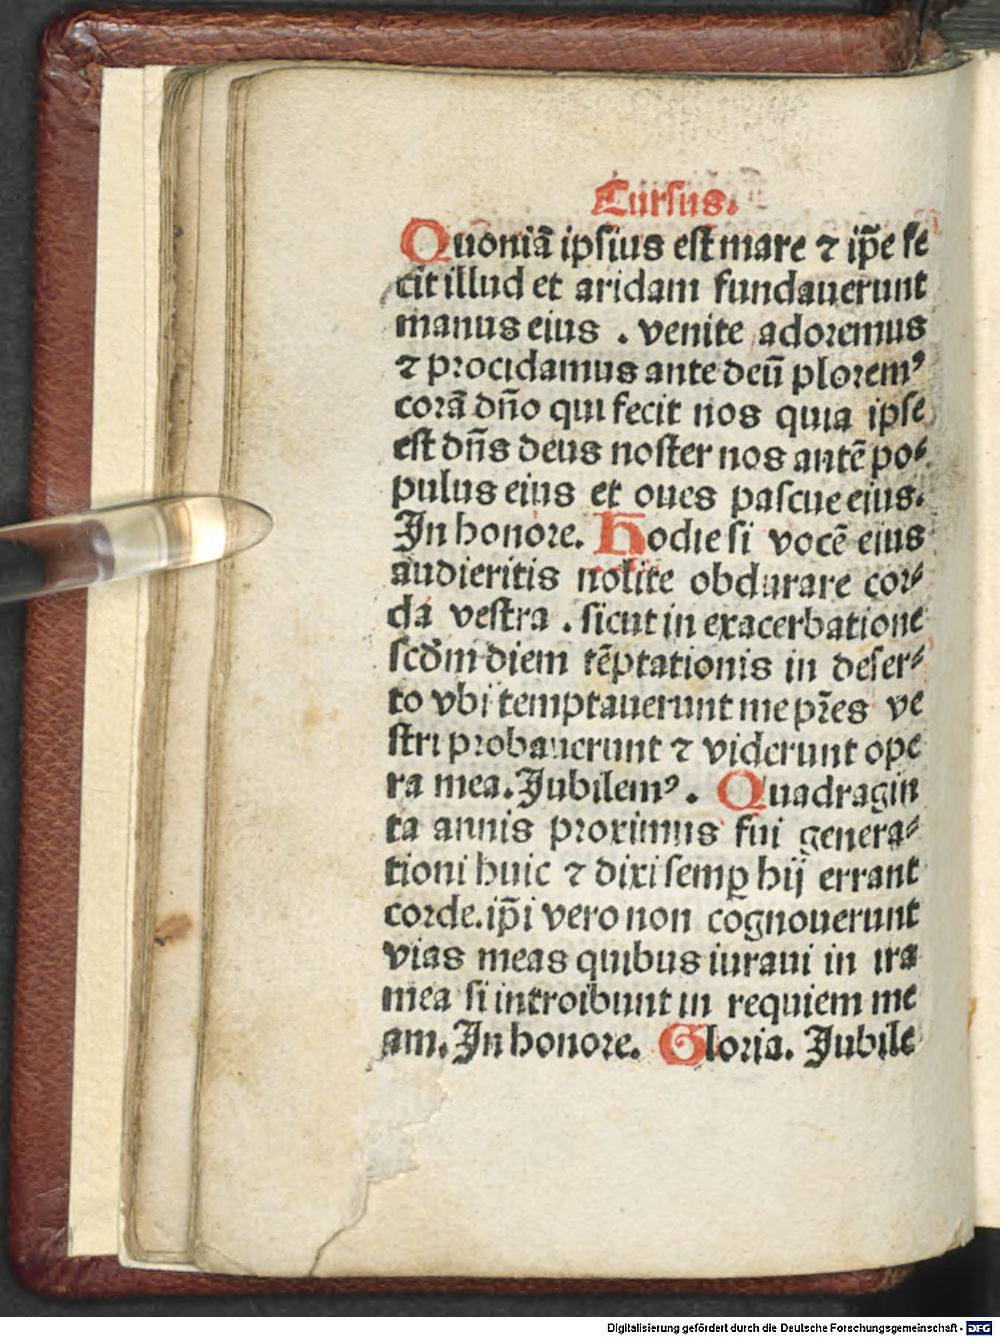 Cursus.
Quoniā ipsius est mare ⁊ ip̄e fe
cit illud et aridam fundauerunt
manus eius . venite adoremus
⁊ procidamus ante deū plorem⁹
corā dn̄o qui fecit nos quia ipse
est dn̄s deus noster nos antē po⸗
pulus eius et oues pascue eius.
In honore. Hodie si vocē eius
audieritis nolite obdurare cor⸗
da vestra . sicut in exacerbatione
scd̄m diem tēptationis in deser⸗
to vbi temptauerunt me pr̄es ve
stri probauerunt ⁊ viderunt ope
ra mea. Jubilem⁹ . Quadragin
ta annis proximus fui genera⸗
tioni huic ⁊ dixi semꝑ hij errant
corde. ip̄i vero non cognouerunt
vias meas quibus iuraui in ira
mea si introibunt in requiem me
am. In honore. Gloria. Jubile
Digitalisierung gefördert durch die Deutsche Forschungsgemeinschaft - DFG